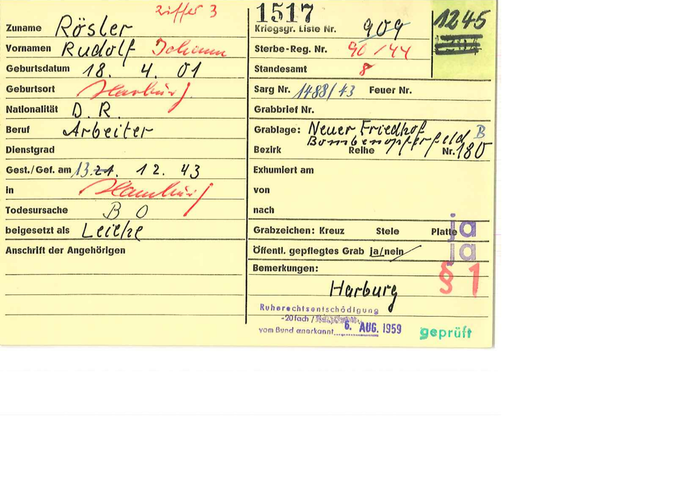 Ziffer 3
Zuname Rösler
Vornamen Rudolf Johann
Geburtsdatum 18. 4. 01
Geburtsort Harburg
Nationalität D. R.
Beruf Arbeiter
Dienstgrad
Gest./Gef. am 13. 12. 43
in Hamburg
Todesursache B O
beigesetzt als Leiche
Anschrift der Angehörigen
1517
1245
Kriegsgr. Liste Nr. 909
Sterbe-Reg. Nr. 90/44
Standesamt 8
Sarg Nr. 1488/43 Feuer Nr.
Grabbrief Nr.
Grablage: Neuer Friedhof B
Bombenopferfeld
Bezirk Reihe Nr. 180
Exhumiert am
von
nach
Grabzeichen: Kreuz Stele Platte ja
Öffentl. gepflegtes Grab ja/nein ja
Bemerkungen: § 1
Harburg
Ruherechtsentschädigung
-20fach /
vom Bund anerkannt 6. AUG. 1959
geprüft